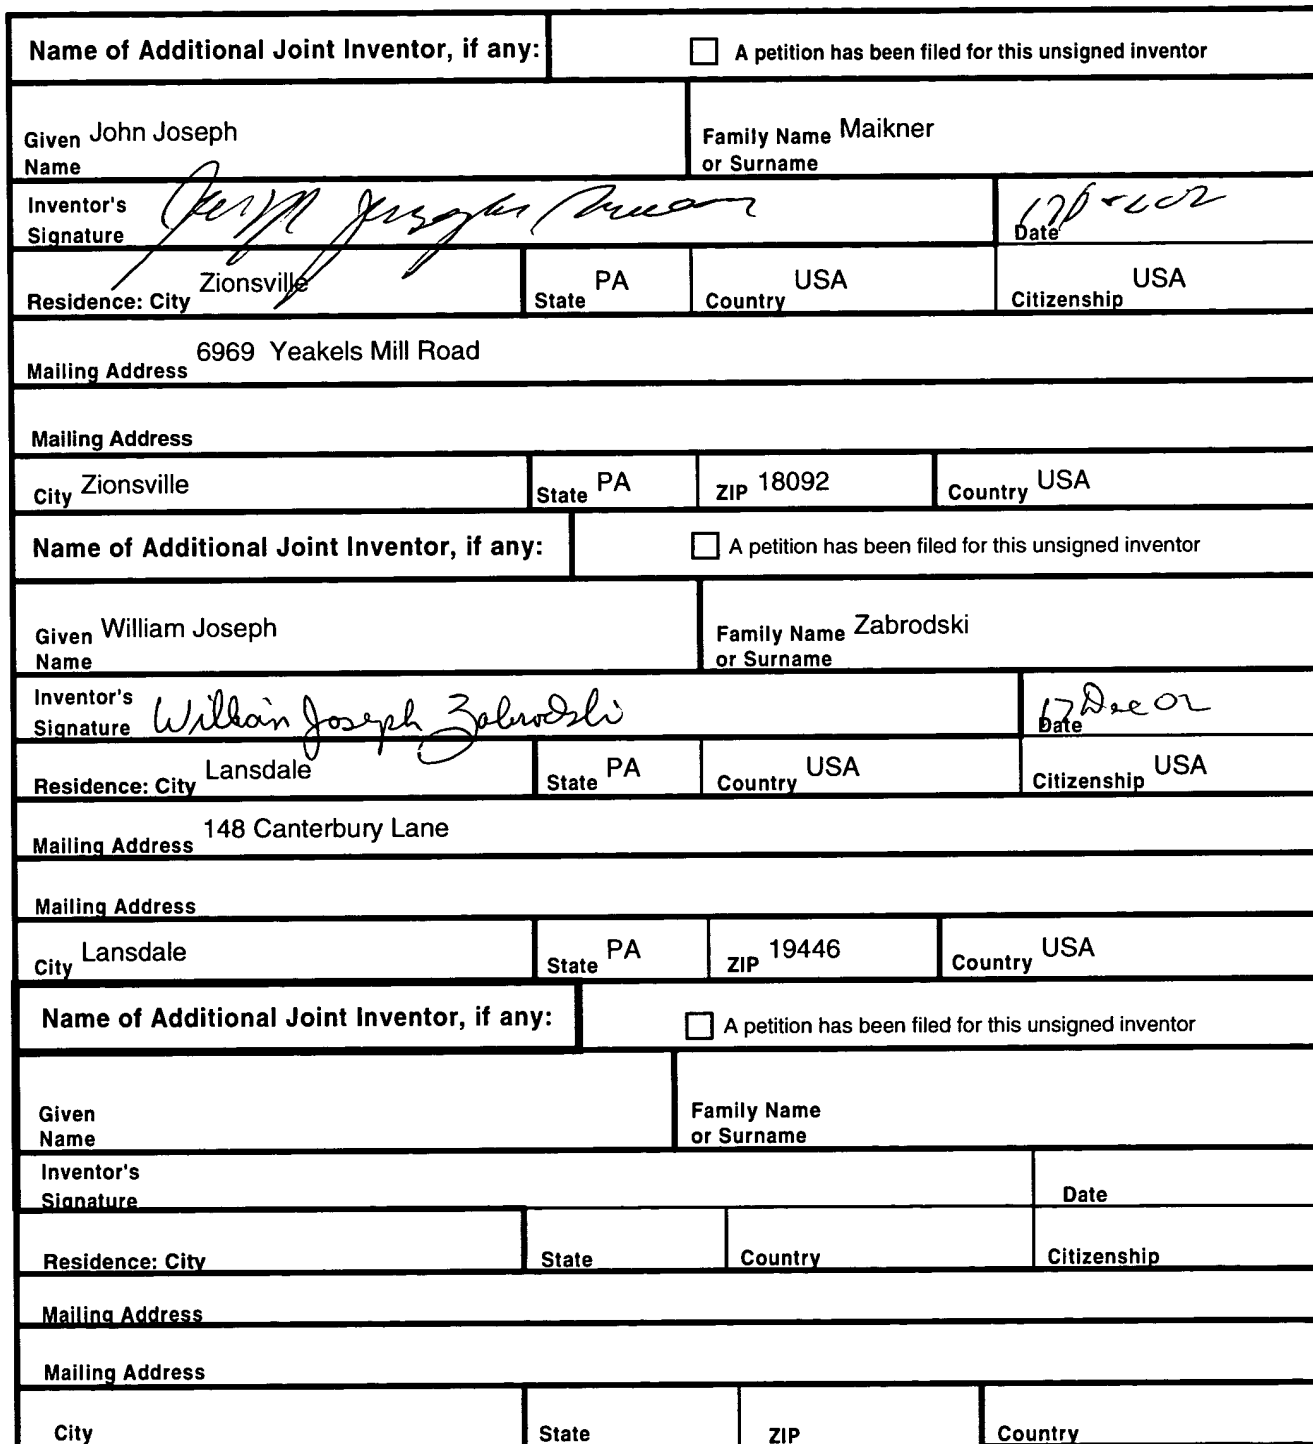 Name of Additional Joint Inventor, if any: A petition has been filed for this unsigned inventor
Given Name John Joseph Family Name or Surname Maikner
Inventor's Signature Date
Residence: City Zionsville State PA Country USA Citizenship USA
Mailing Address 6969 Yeakels Mill Road
Mailing Address
City Zionsville State PA ZIP 18092 Country USA
Name of Additional Joint Inventor, if any: A petition has been filed for this unsigned inventor
Given Name William Joseph Family Name or Surname Zabrodski
Inventor's Signature William Joseph Zabrodski Date 17 Dec 02
Residence: City Lansdale State PA Country USA Citizenship USA
Mailing Address 148 Canterbury Lane
Mailing Address
City Lansdale State PA ZIP 19446 Country USA
Name of Additional Joint Inventor, if any: A petition has been filed for this unsigned inventor
Given Name Family Name or Surname
Inventor's Signature Date
Residence: City State Country Citizenship
Mailing Address
Mailing Address
City State ZIP Country